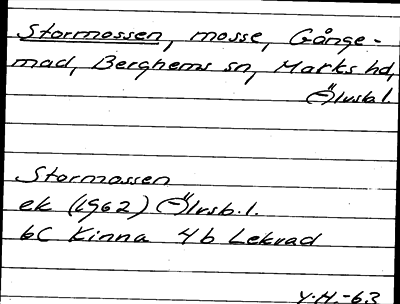 Stormossen, mosse, Gånge-
mad, Berghems sn, Marks hd,
Älvsb l.
Stormossen
ek (1962) Älvsb. l.
6C Kinna 4b Lekvad
Y.H.-63